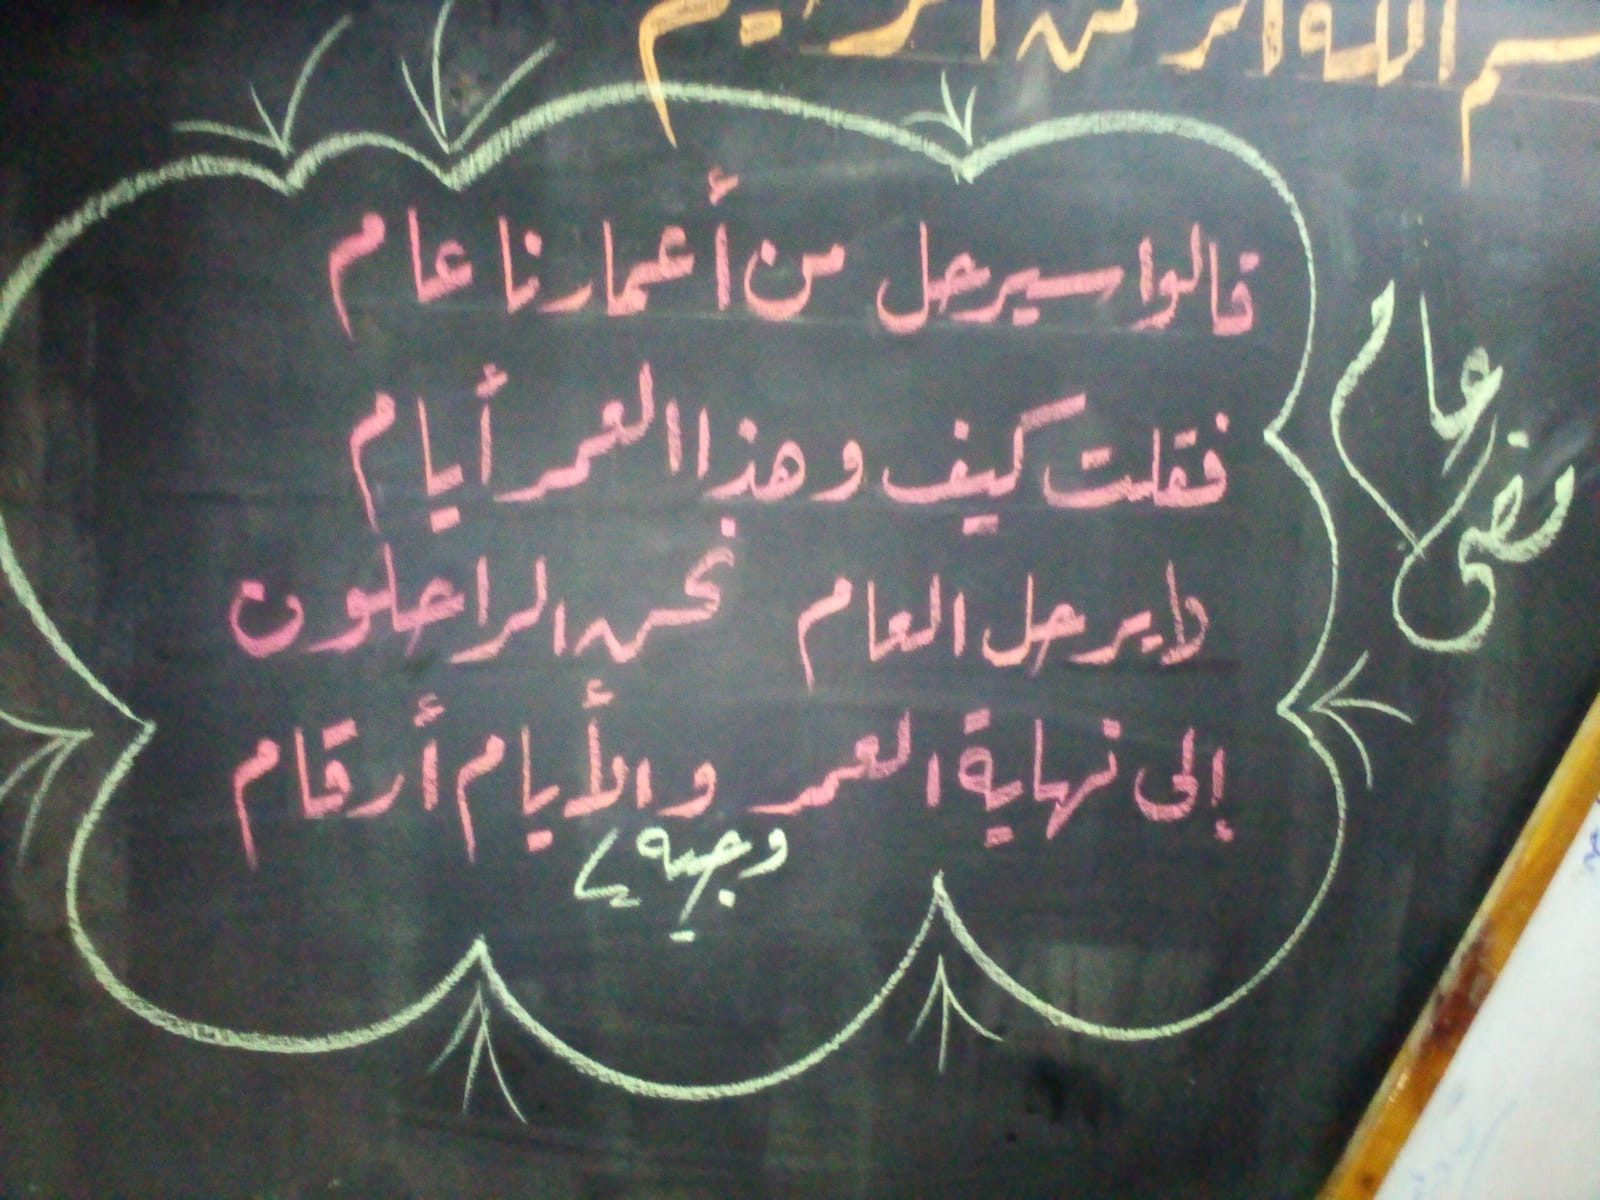 بسم الله الرحمن الرحيم
قالوا سيرحل من أعمارنا عام
فقلت كيف وهذا العمر أيام
لا يرحل العام نحن الراحلون
إلى نهاية العمر والأيام أرقام
وجيه
عام
مضى